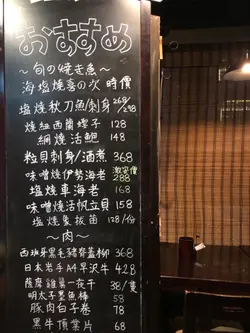 おすすめ
～旬の焼き魚～
海塩燒喜の次 時價
塩燒秋刀魚/刺身 268/298
燒紐西蘭蟶子 128
網燒活鮑 148
粒貝刺身/酒煮 368
味噌燒伊勢海老 激安價 288
塩燒車海老 168
味噌燒活帆立貝 158
塩燒象拔苗 128/份
～肉～
西班牙黑毛豬脊蓋柳 368
日本岩手A4早沢牛 428
薩摩雞翼一夜干 38/隻
明太子墨魚棒 58
豚肉白子卷 78
黑牛頂業片 68